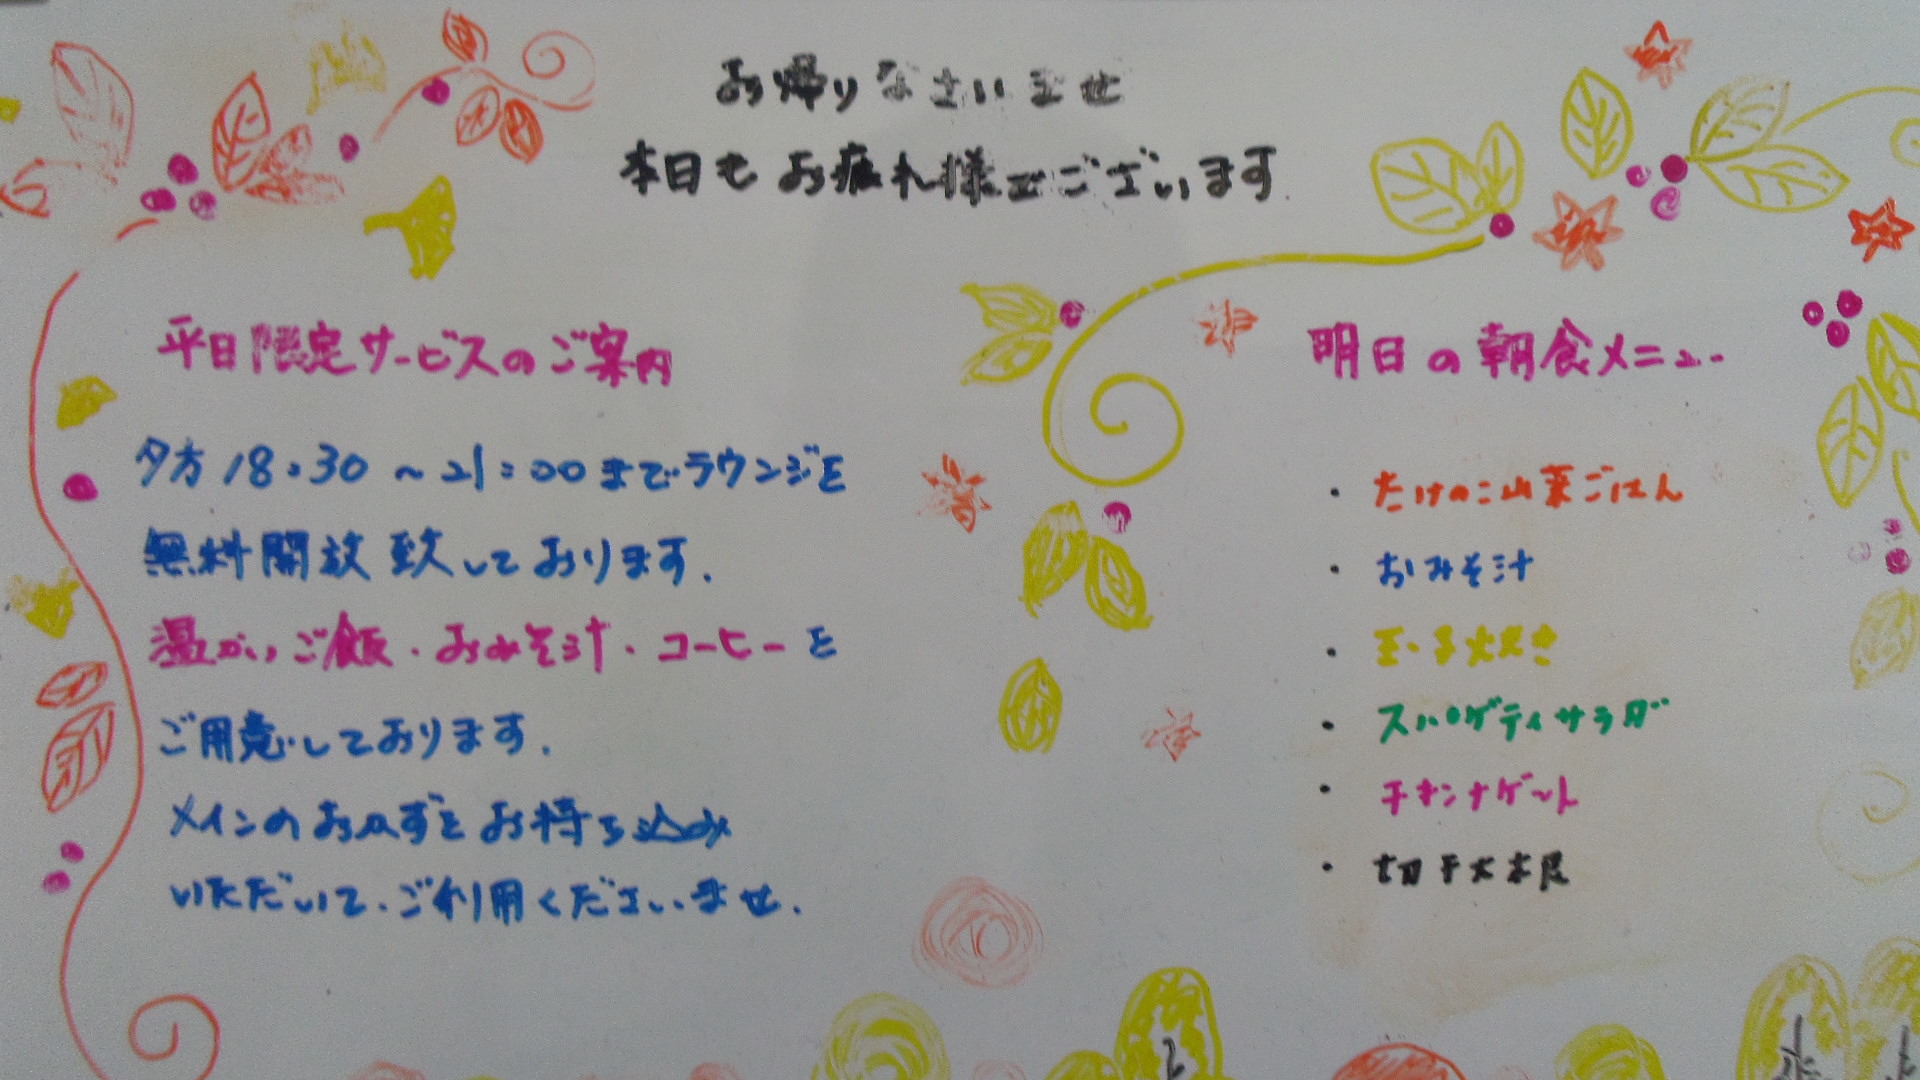 お帰りなさいませ
本日もお疲れ様でございます
平日限定サービスのご案内
夕方18:30～21:00までラウンジを
無料開放致しております.
温かいご飯・おみそ汁・コーヒーを
ご用意しております.
メインのおかずをお持ち込み
いただいて、ご利用くださいませ.
明日の朝食メニュー
・たけのこ山菜ごはん
・おみそ汁
・玉子焼き
・スパゲティサラダ
・チキンナゲット
・切干大根